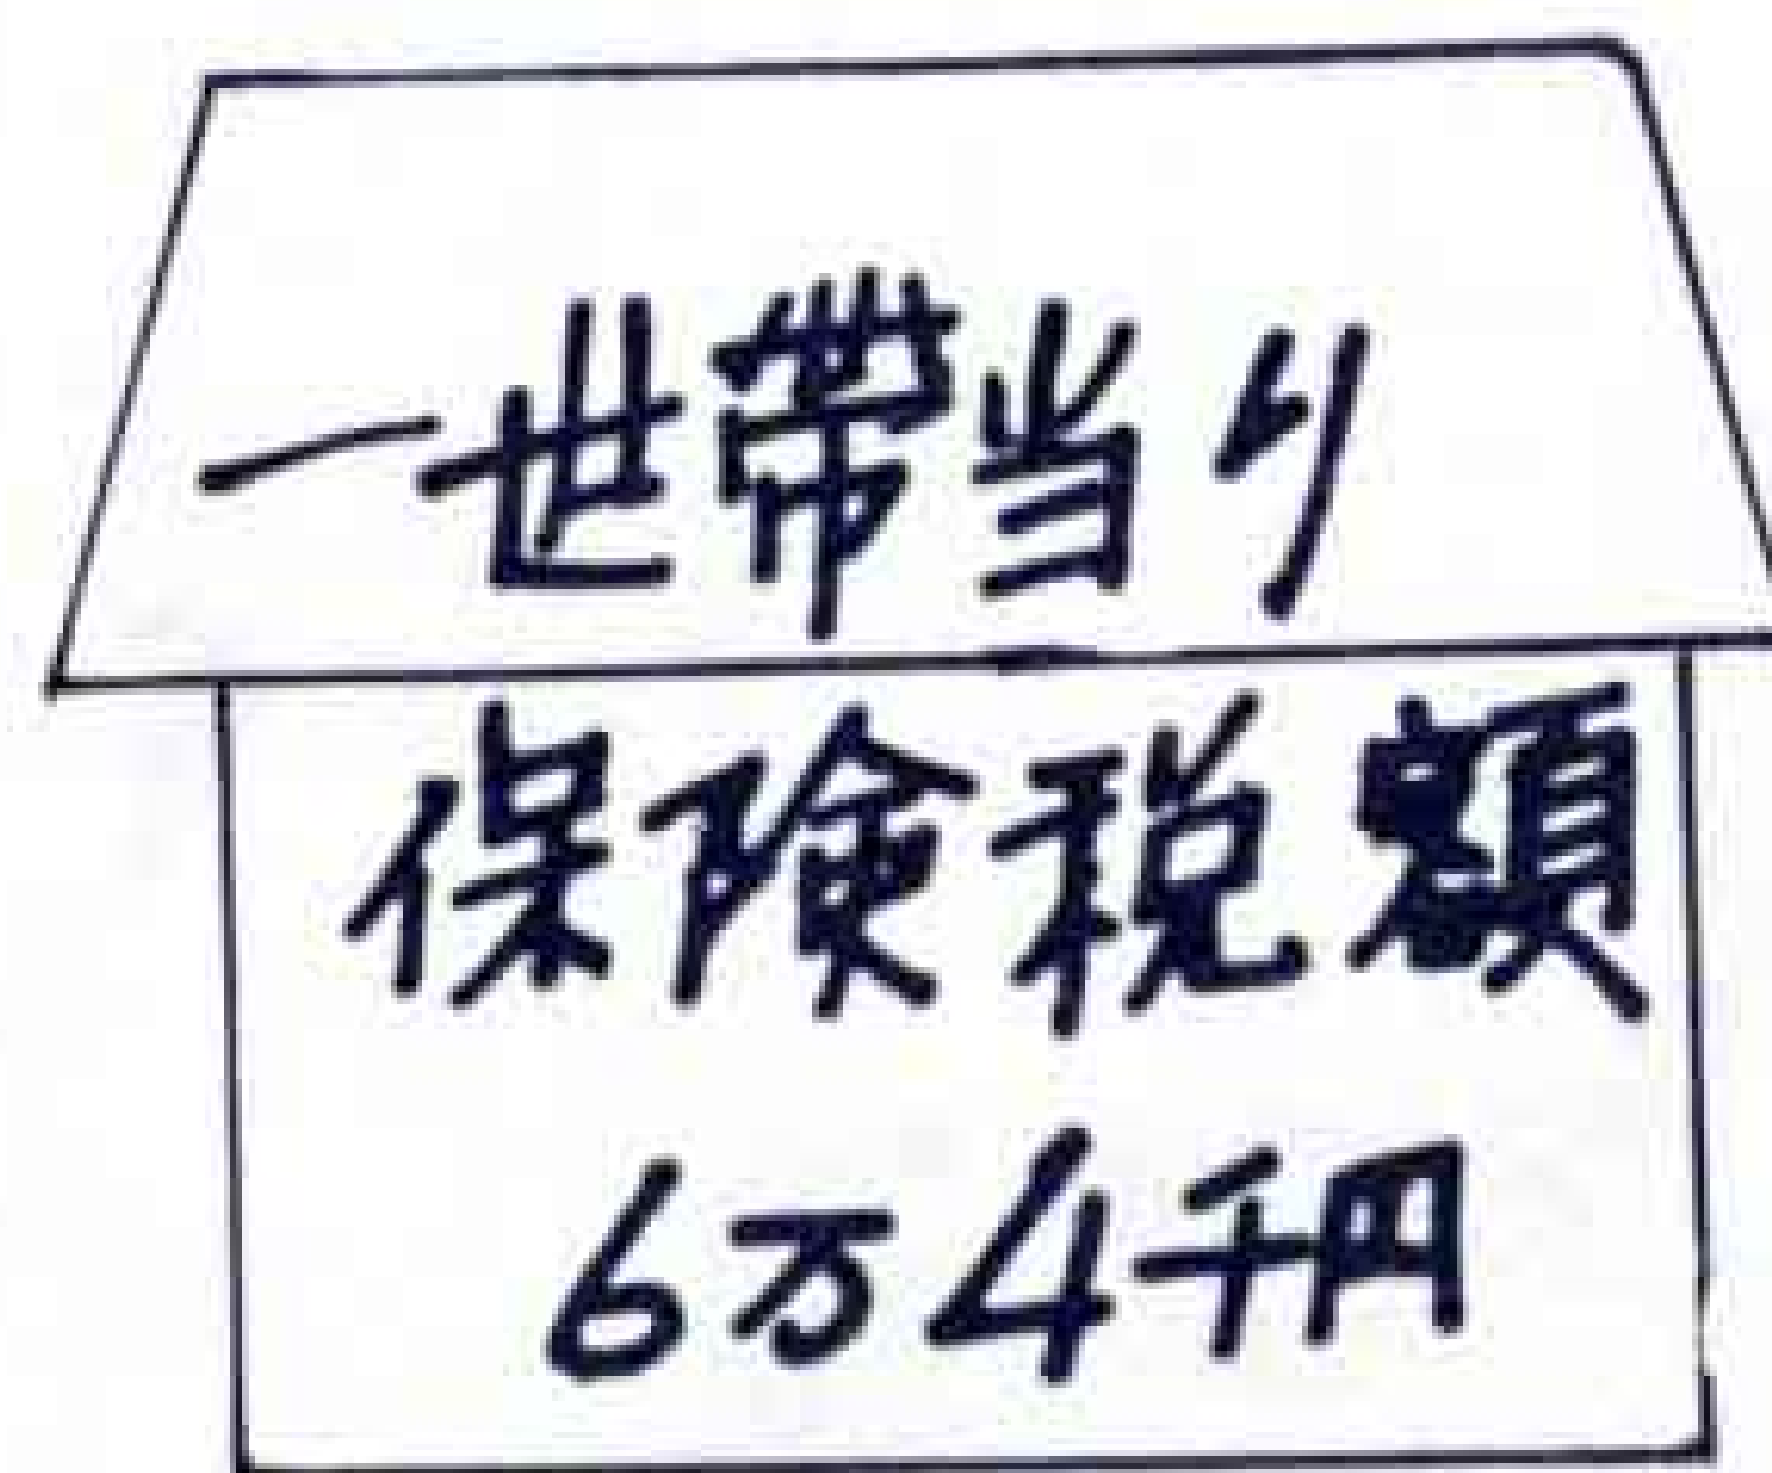 一世帯当り
保険税額
6万4千円